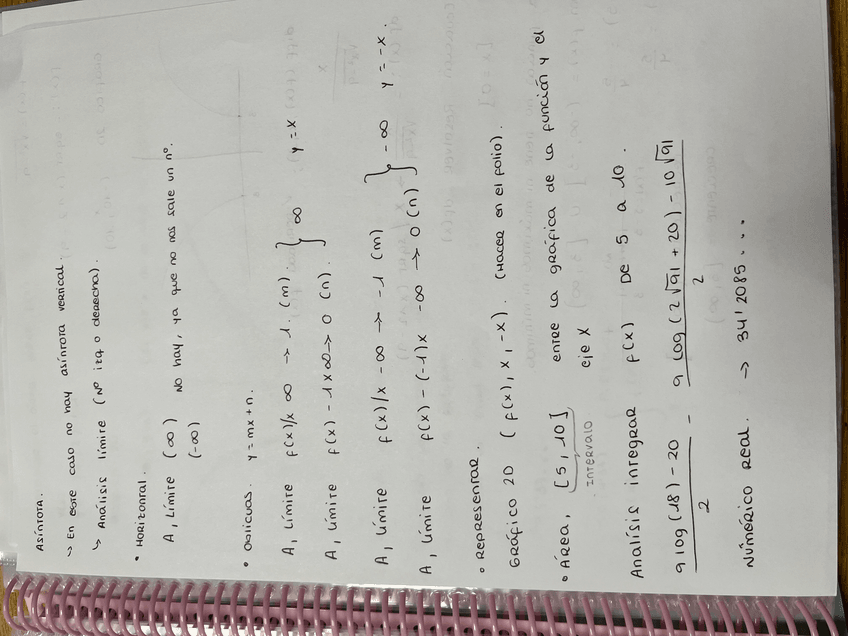 Asíntota.
↳ En este caso no hay asíntota vertical.
↳ Análisis límite (nº izq o derecha).
• Horizontal.
A, Límite (∞) No hay, ya que no nos sale un nº.
(-∞)
• Oblicuas. y = mx + n.
A, Límite f(x)/x ∞ → 1. (m). } ∞ y = x
A, Límite f(x) - 1x ∞ → 0 (n).
A, Límite f(x)/x -∞ → -1 (m) } -∞ y = -x.
A, Límite f(x) - (-1)x -∞ → 0 (n)
• Representar.
Gráfico 2D (f(x), x, -x). (Hacer en el folio).
• Área, [5, 10] entre la gráfica de la función y el
. Intervalo eje x
Analisis integrar f(x) De 5 a 10.
9 log(18) - 20 / 2 - 9 log(2√91 + 20) - 10√91 / 2
Numérico real. → 34'2085...